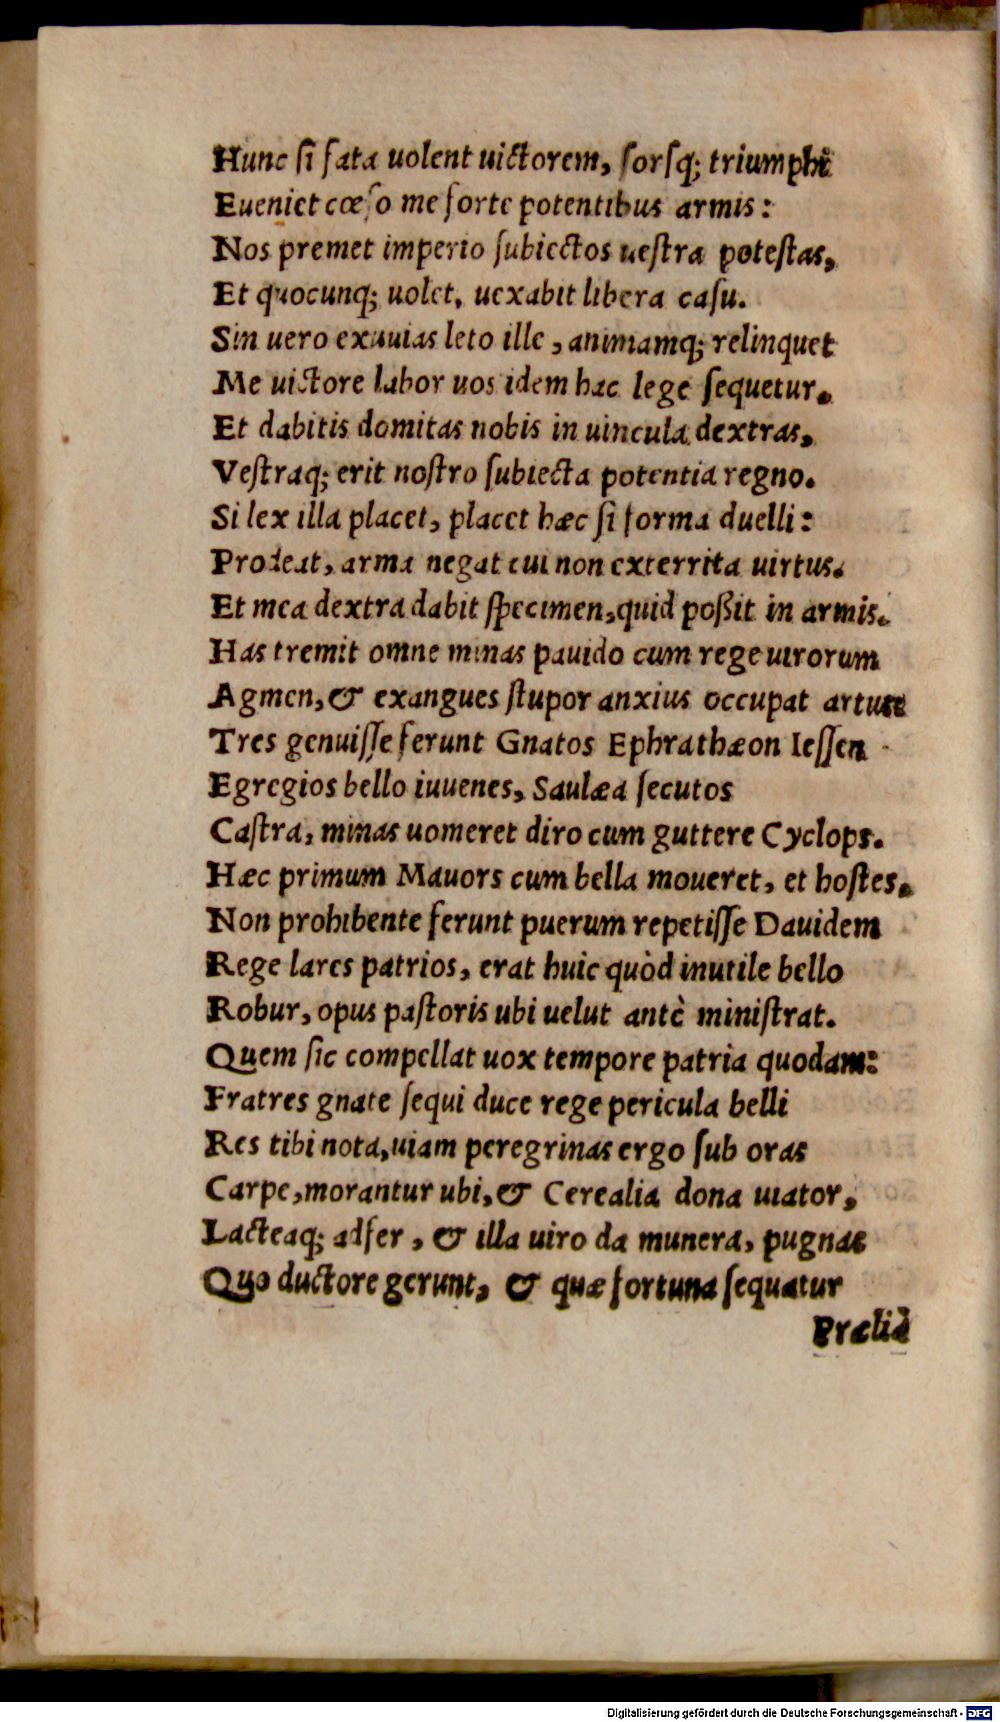 Hunc ſi fata uolent uictorem, ſorſq; triumphi
Eueniet cœſo me forte potentibus armis:
Nos premet imperio ſubiectos ueſtra poteſtas,
Et quocunq; uolet, uexabit libera caſu.
Sin uero exuuias leto ille, animamq; relinquet
Me uictore labor uos idem hac lege ſequetur.
Et dabitis domitas nobis in uincula dextras,
Veſtraq; erit noſtro ſubiecta potentia regno.
Si lex illa placet, placet hæc ſi forma duelli:
Prodeat, arma negat cui non exterrita uirtus.
Et mea dextra dabit ſpecimen, quid poßit in armis.
Has tremit omne minas pauido cum rege uirorum
Agmen, & exangues ſtupor anxius occupat artus
Tres genuiſſe ferunt Gnatos Ephrathæon Ieſſen
Egregios bello iuuenes, Saulæa ſecutos
Caſtra, minas uomeret diro cum guttere Cyclops.
Hæc primum Mauors cum bella moueret, et hoſtes.
Non prohibente ferunt puerum repetiſſe Dauidem
Rege lares patrios, erat huic quòd inutile bello
Robur, opus paſtoris ubi uelut antè miniſtrat.
Quem ſic compellat uox tempore patria quodam:
Fratres gnate ſequi duce rege pericula belli
Res tibi nota, uiam peregrinas ergo ſub oras
Carpe, morantur ubi, & Cerealia dona uiator,
Lacteaq; adfer, & illa uiro da munera, pugnas
Quo ductore gerunt, & quæ fortuna ſequatur
Prælià
Digitalisierung gefördert durch die Deutsche Forschungsgemeinschaft - DFG